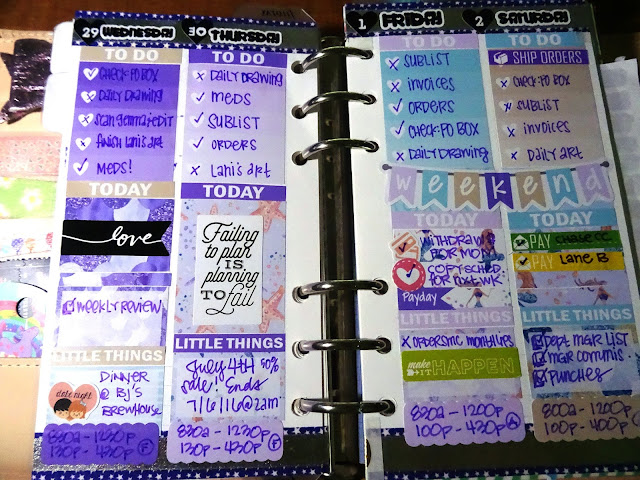 29 WEDNESDAY
TO DO
CHECK PO BOX
DAILY DRAWING
scan gemma+edit
finish Lani's art
MEDS!
TODAY
love
weekly review
LITTLE THINGS
date night
DINNER
@ BJ'S
BREWHOUSE
830a - 1230p
130p - 430p F
30 THURSDAY
TO DO
DAILY DRAWING
MEDS
SUBLIST
ORDERS
Lani's art
TODAY
Failing
to plan
IS
planning
TO fail
LITTLE THINGS
July 4th 50%
sale. Ends
7/6/16 @ 2am
830a - 1230p
130p - 430p F
1 FRIDAY
TO DO
SUBLIST
INVOICES
ORDERS
CHECK PO BOX
DAILY DRAWING
weekend
TODAY
WITHDRAW $
FOR MOM
COPY SCHED
FOR NXT WK
Payday
LITTLE THINGS
ORDERS MC MONTHLYS
make IT HAPPEN
830a - 1200p
100p - 430p A
2 SATURDAY
TO DO
SHIP ORDERS
CHECK PO BOX
SUBLIST
INVOICES
DAILY ART
TODAY
PAY CHASE CC
PAY LANE B
LITTLE THINGS
Dept mgr LIST
mgr commis.
PUNCHES
830a - 1200p
100p - 400p